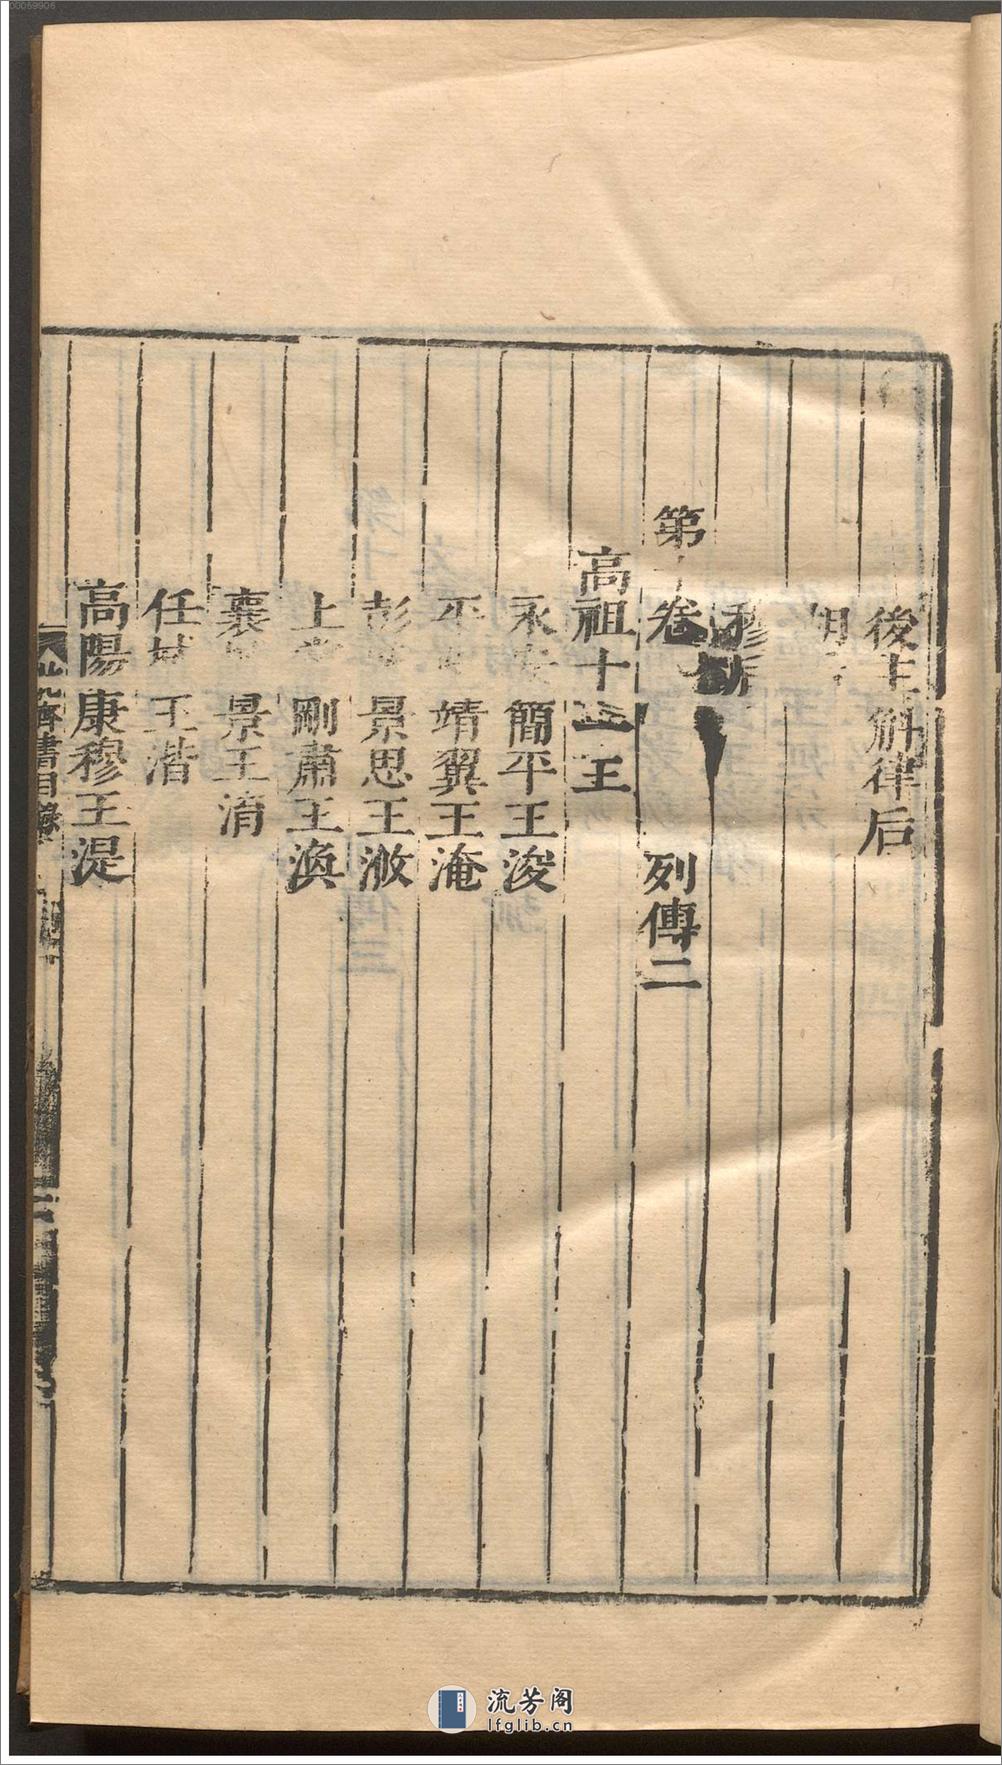 00059906
後主斛律后
胡后
穆后
第十卷 列傳二
高祖十一王
永安簡平王浚
平 靖翼王淹
彭 景思王浟
上 剛肅王渙
襄 景王淯
任城王湝
高陽康穆王湜
北齊書目錄
流芳阁
lfglib.cn